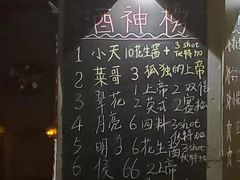 西神榜
1 小天 10花生酱+3shot伏特加
2 菜哥 3 孤独的上帝
3 翠花 1上帝 2双倍
2英式 2雪松
4 月亮 6四料 3shot伏特加
5 明子 6花生酱
6 侯 66 2上帝